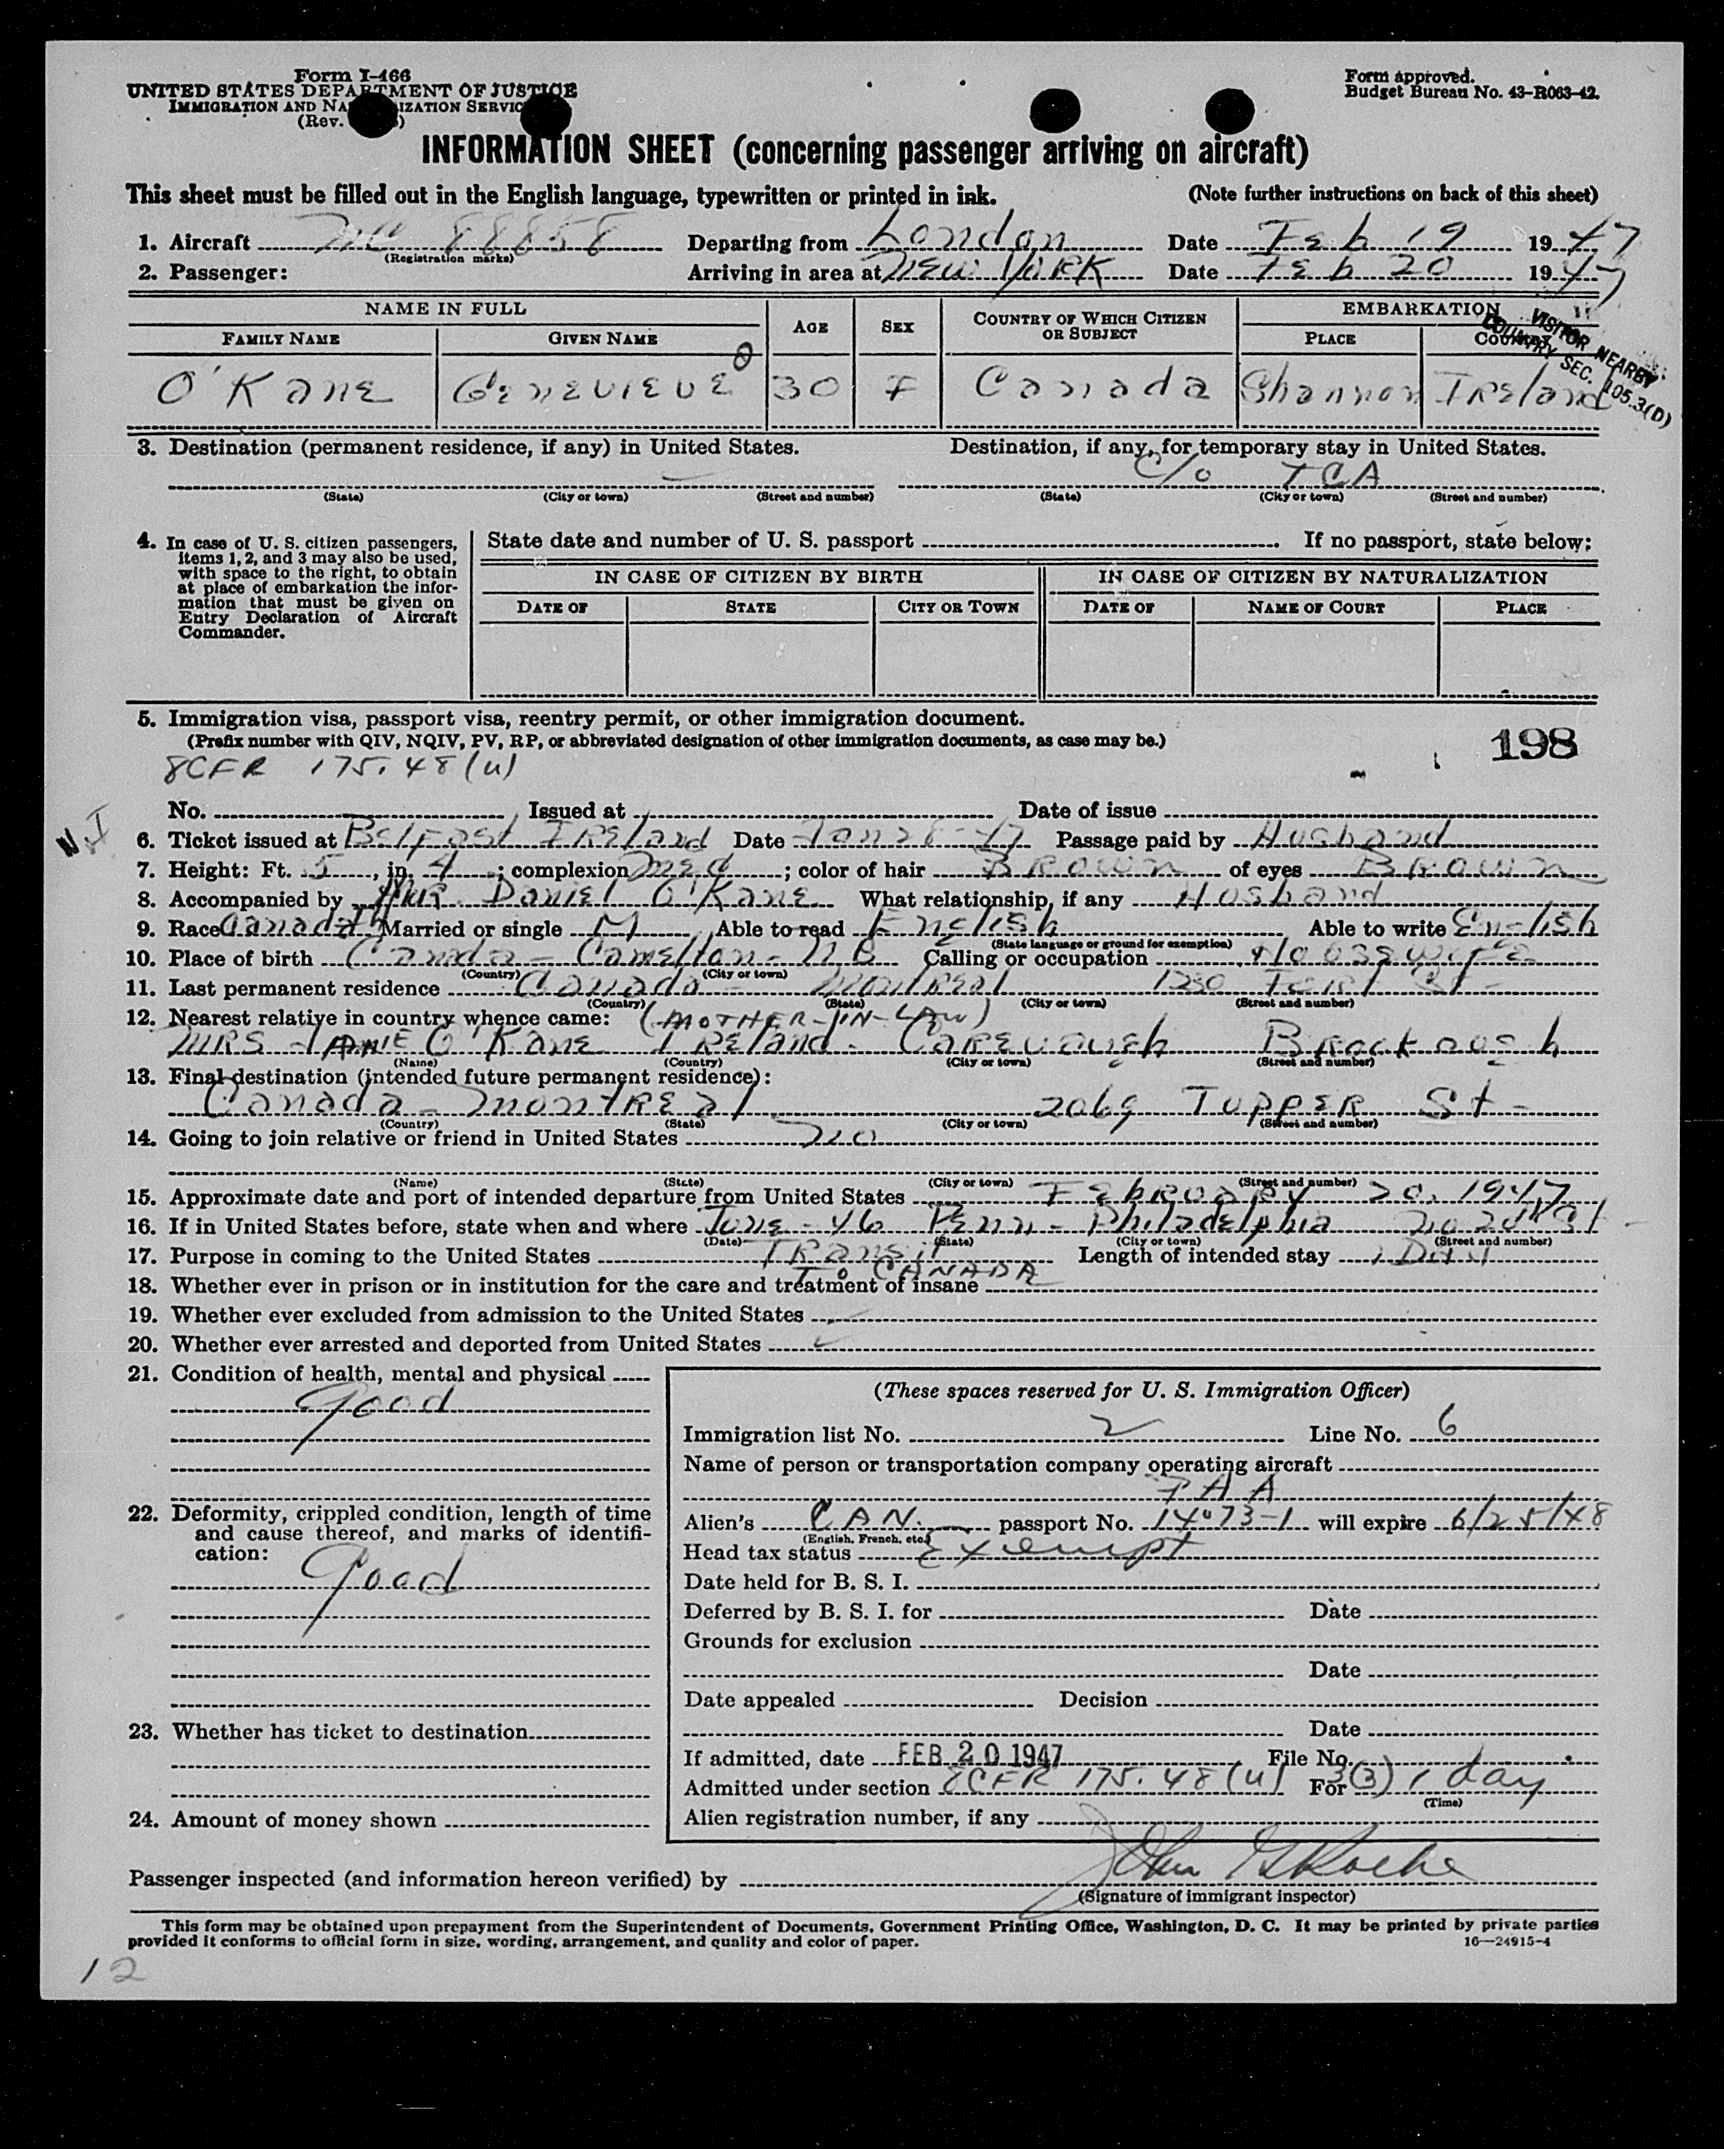 Form I-466
UNITED STATES DEPARTMENT OF JUSTICE
IMMIGRATION AND NA IZATION SERVIC
(Rev. )
Form approved.
Budget Bureau No. 43-R063-42.
INFORMATION SHEET (concerning passenger arriving on aircraft)
This sheet must be filled out in the English language, typewritten or printed in ink. (Note further instructions on back of this sheet)
1. Aircraft NC 88858 Departing from London Date Feb 19 1947
(Registration marks)
2. Passenger: Arriving in area at New York Date Feb 20 1947
NAME IN FULL AGE SEX COUNTRY OF WHICH CITIZEN OR SUBJECT EMBARKATION
FAMILY NAME GIVEN NAME PLACE COUNTRY
VISITOR NEARBY
COUNTRY SEC. 105.3(D)
O'Kane Genevieve 30 F Canada Shannon Ireland
3. Destination (permanent residence, if any) in United States. Destination, if any, for temporary stay in United States.
— C/o TCA
(State) (City or town) (Street and number) (State) (City or town) (Street and number)
4. In case of U. S. citizen passengers,
items 1, 2, and 3 may also be used,
with space to the right, to obtain
at place of embarkation the infor-
mation that must be given on
Entry Declaration of Aircraft
Commander.
State date and number of U. S. passport . If no passport, state below:
IN CASE OF CITIZEN BY BIRTH IN CASE OF CITIZEN BY NATURALIZATION
DATE OF STATE CITY OR TOWN DATE OF NAME OF COURT PLACE
5. Immigration visa, passport visa, reentry permit, or other immigration document.
(Prefix number with QIV, NQIV, PV, RP, or abbreviated designation of other immigration documents, as case may be.)
198
8CFR 175.48(u)
No. , Issued at Date of issue
N.I
6. Ticket issued at Belfast Ireland Date Jan 28-47 Passage paid by Husband
7. Height: Ft. 5, in. 4; complexion Med; color of hair Brown of eyes Brown
8. Accompanied by Mr. Daniel O'Kane What relationship, if any Husband
9. Race Canada Married or single M Able to read English Able to write English
(State language or ground for exemption)
10. Place of birth Canada - Camelton - N B Calling or occupation Housewife
(Country) (City or town)
11. Last permanent residence Canada - Montreal 1230 Fort St -
(Country) (State) (City or town) (Street and number)
12. Nearest relative in country whence came: (MOTHER-IN-LAW)
MRS O'Kane Ireland - Carevaugh
(Name) (Country) (City or town) (Street and number)
13. Final destination (intended future permanent residence):
Canada - Montreal 2069 Tupper St -
(Country) (State) (City or town) (Street and number)
14. Going to join relative or friend in United States No
(Name) (State) (City or town) (Street and number)
15. Approximate date and port of intended departure from United States February 20, 1947
16. If in United States before, state when and where June - 46 Penn - Philadelphia no 20th St -
(Date) (State) (City or town) (Street and number)
17. Purpose in coming to the United States Transit Length of intended stay 1 Day
To CANADA
18. Whether ever in prison or in institution for the care and treatment of insane
19. Whether ever excluded from admission to the United States
20. Whether ever arrested and deported from United States
21. Condition of health, mental and physical
Good
22. Deformity, crippled condition, length of time
and cause thereof, and marks of identifi-
cation:
Good
23. Whether has ticket to destination
24. Amount of money shown
(These spaces reserved for U. S. Immigration Officer)
Immigration list No. 2 Line No. 6
Name of person or transportation company operating aircraft
PAA
Alien's CAN. passport No. 14073-1 will expire 6/25/48
(English, French, etc.)
Head tax status Exempt
Date held for B. S. I.
Deferred by B. S. I. for Date
Grounds for exclusion
Date
Date appealed Decision
Date
If admitted, date FEB 20 1947 File No.
Admitted under section 8CFR 175.48(u) For 3(3) 1 day
(Time)
Alien registration number, if any
Passenger inspected (and information hereon verified) by John Roche
(Signature of immigrant inspector)
This form may be obtained upon prepayment from the Superintendent of Documents, Government Printing Office, Washington, D. C. It may be printed by private parties
provided it conforms to official form in size, wording, arrangement, and quality and color of paper. 16—24915-4
12